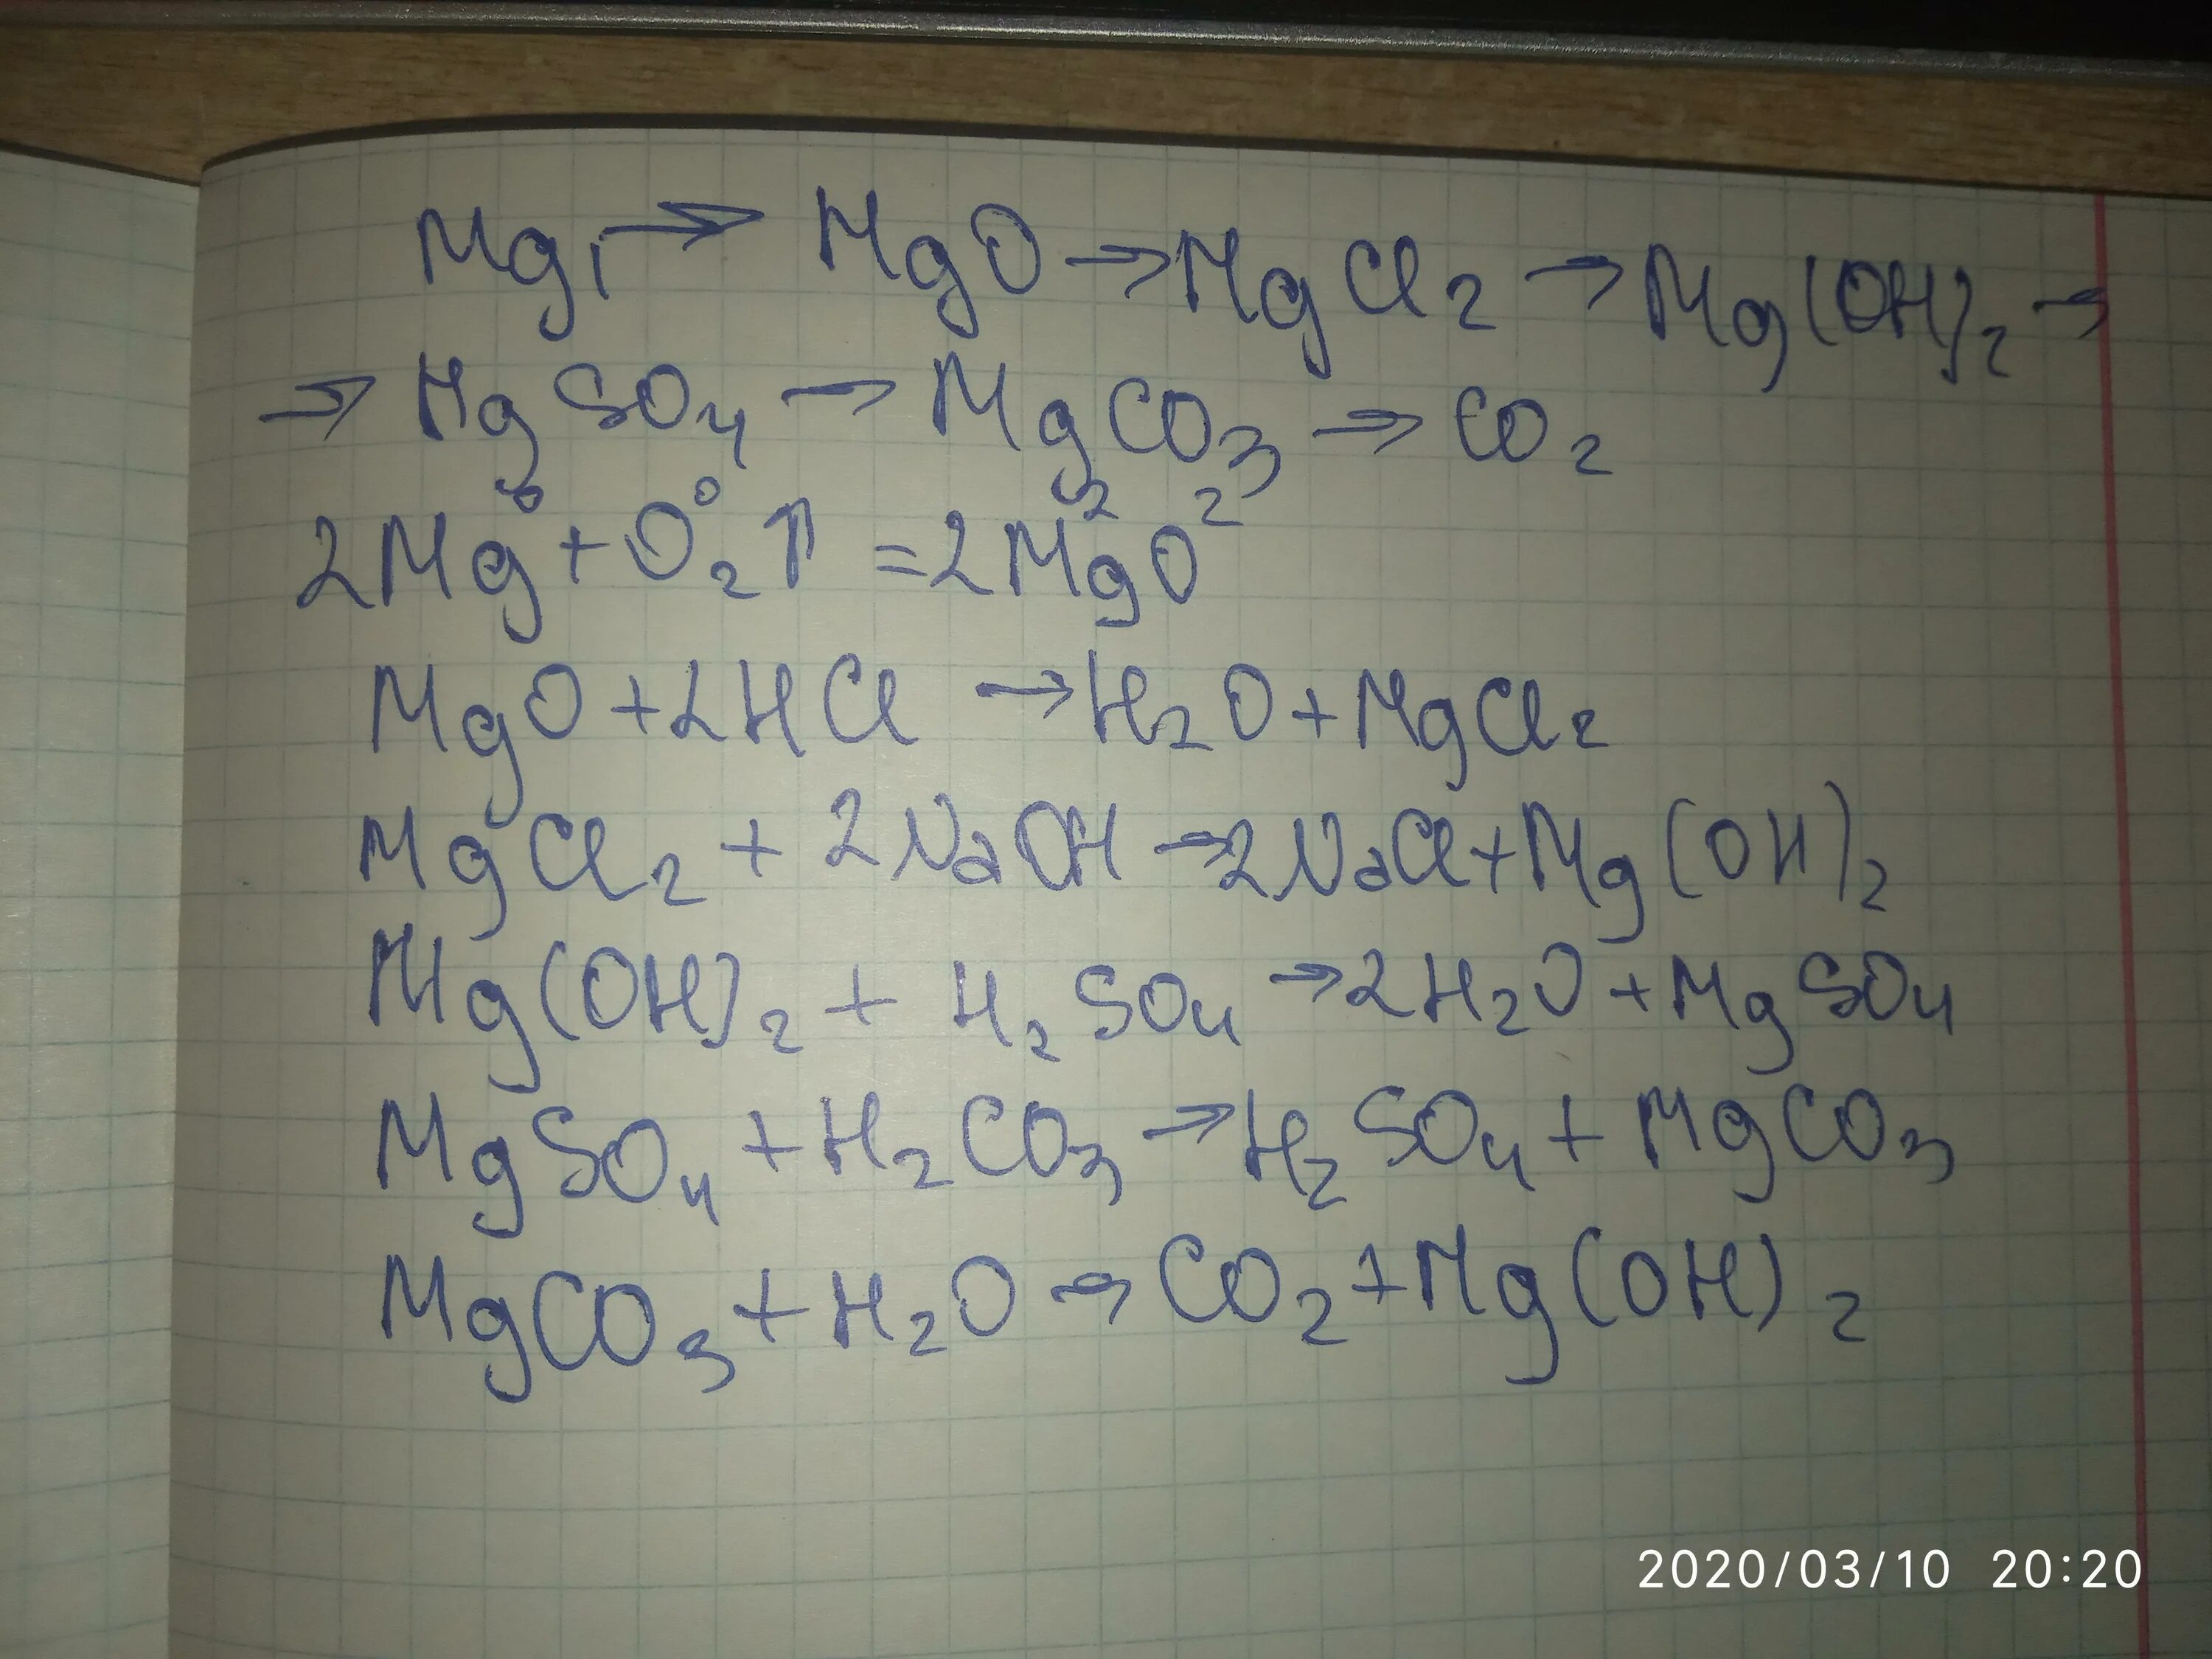 Mg → MgO → MgCl₂ → Mg(OH)₂ →
→ MgSO₄ → MgCO₃ → CO₂
2Mg⁰ + O₂⁰ ↑ = 2Mg²O²
MgO + 2HCl → H₂O + MgCl₂
MgCl₂ + 2NaOH → 2NaCl + Mg(OH)₂
Mg(OH)₂ + H₂SO₄ → 2H₂O + MgSO₄
MgSO₄ + H₂CO₃ → H₂SO₄ + MgCO₃
MgCO₃ + H₂O → CO₂ + Mg(OH)₂
2020/03/10 20:20